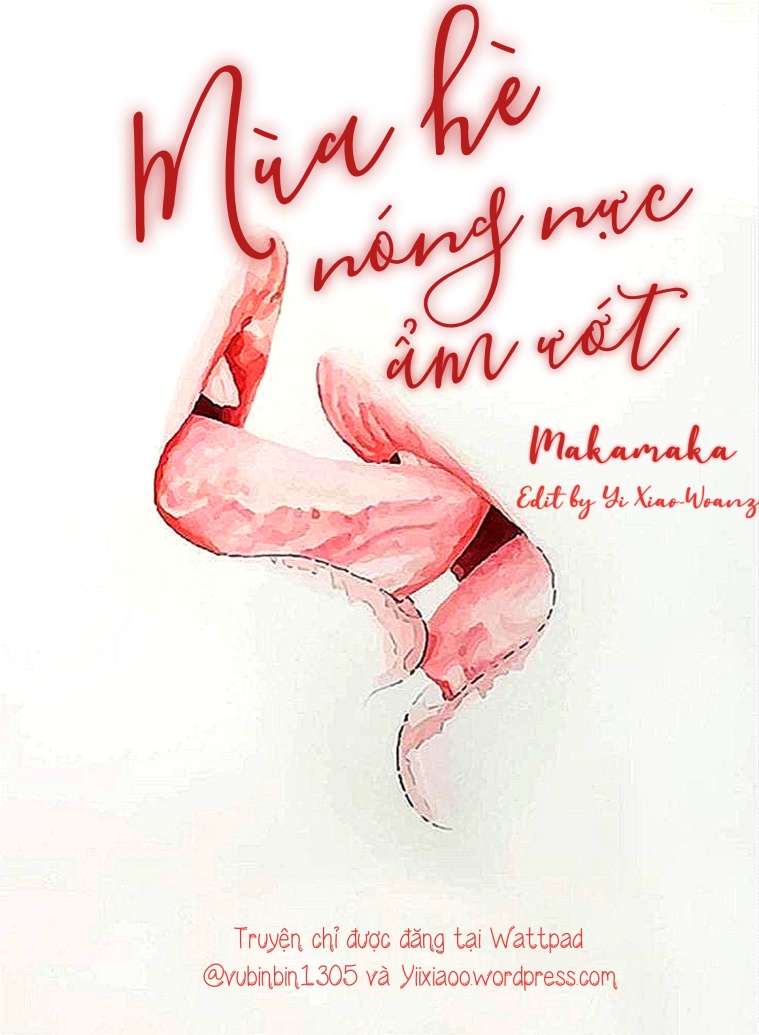 Mùa hè
nóng nực
ẩm ướt
Makamaka
Edit by Yi Xiao-Woanz
Truyện chỉ được đăng tại Wattpad
@vubinbin1305 và Yiixiaoo.wordpress.com